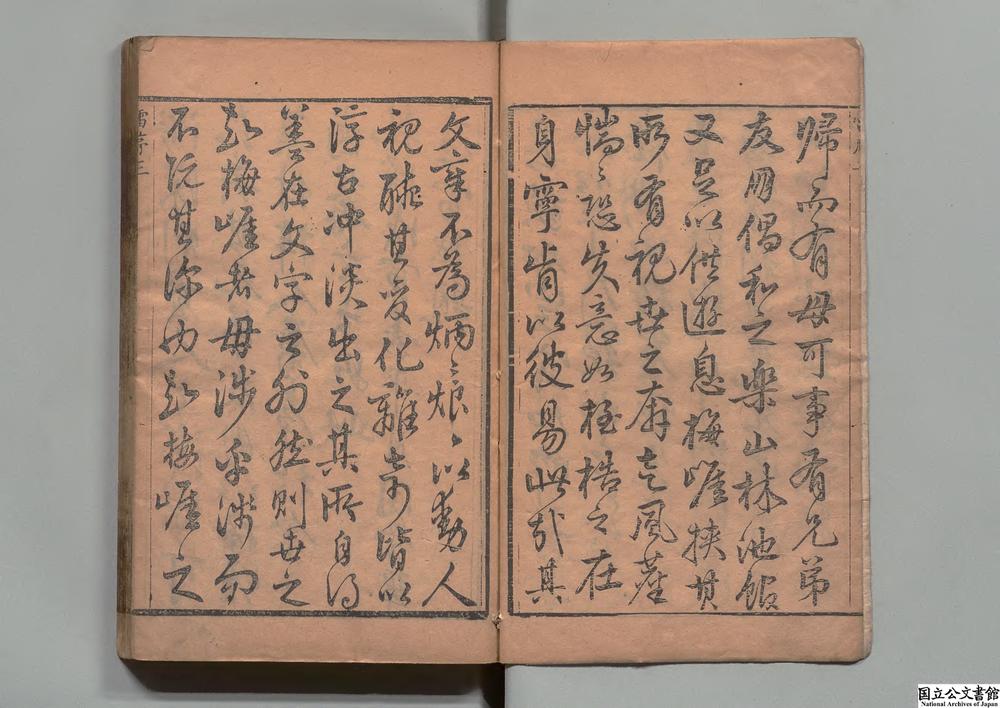 歸而有母可事有兄弟
友朋倡和之樂山林池館
又足以供遊息梅崖挾其
所有視世之奔走風塵
惴〻恐失意如桎梏之在
身寧肯以彼易此哉其
文章不為炳〻烺〻以動人
視聽其變化離奇皆以
淳古冲淡出之其所自得
蓋在文字之外然則世之
題梅崖者毋涉乎淺而
不既其深也題梅崖之
國立公文書館
National Archives of Japan